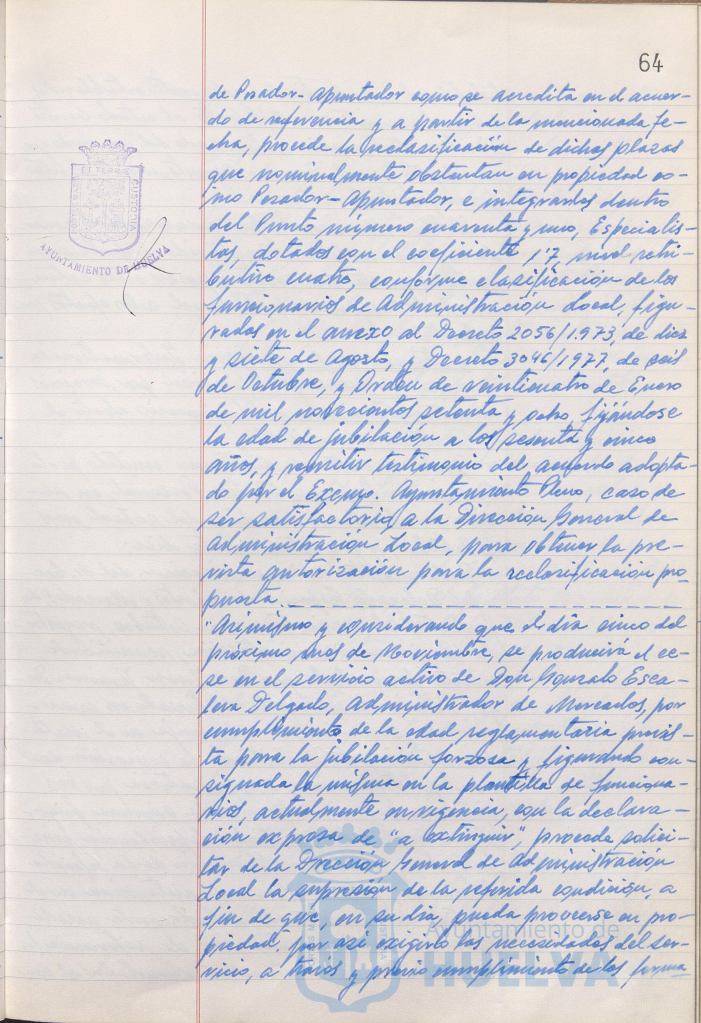 64
de Pesador-Apuntador como se acredita en el acuer-
do de referencia y a partir de la mencionada fe-
cha, procede la reclasificación de dichas plazas
que nominalmente obstentan en propiedad co-
mo Pesador-Apuntador, e integrarlos dentro
del Punto número cuarenta y uno, Especialis-
tas, dotados con el coeficiente 1'7, nivel retri-
butivo cuatro, conforme clasificación de los
funcionarios de Administración Local, figu-
rados en el anexo al Decreto 2056/1.973, de diez
y siete de Agosto, y Decreto 3046/1977, de seis
de Octubre, y Orden de veinticuatro de Enero
de mil novecientos setenta y ocho, fijándose
la edad de jubilación a los sesenta y cinco
años, y remitir testimonio del acuerdo adopta-
do por el Excmo. Ayuntamiento Pleno, caso de
ser satisfactorio, a la Dirección General de
Administración Local, para obtener la pre-
vista autorización para la reclasificación pro-
puesta.
"Asimismo y considerando que el día cinco del
próximo mes de Noviembre, se producirá el ce-
se en el servicio activo de Don Gonzalo Esca-
lera Delgado, Administrador de Mercados, por
cumplimiento de la edad reglamentaria previs-
ta para la jubilación forzosa y figurando con-
signada la misma en la plantilla de funciona-
rios, actualmente en vigencia, con la declara-
ción expresa de "a extinguir", procede solici-
tar de la Dirección General de Administración
Local la supresión de la referida condición, a
fin de que, en su día, pueda proveerse en pro-
piedad, por así exigirlo las necesidades del ser-
vicio, a través y previo cumplimiento de los forma
AYUNTAMIENTO DE HUELVA
Ayuntamiento de
HUELVA